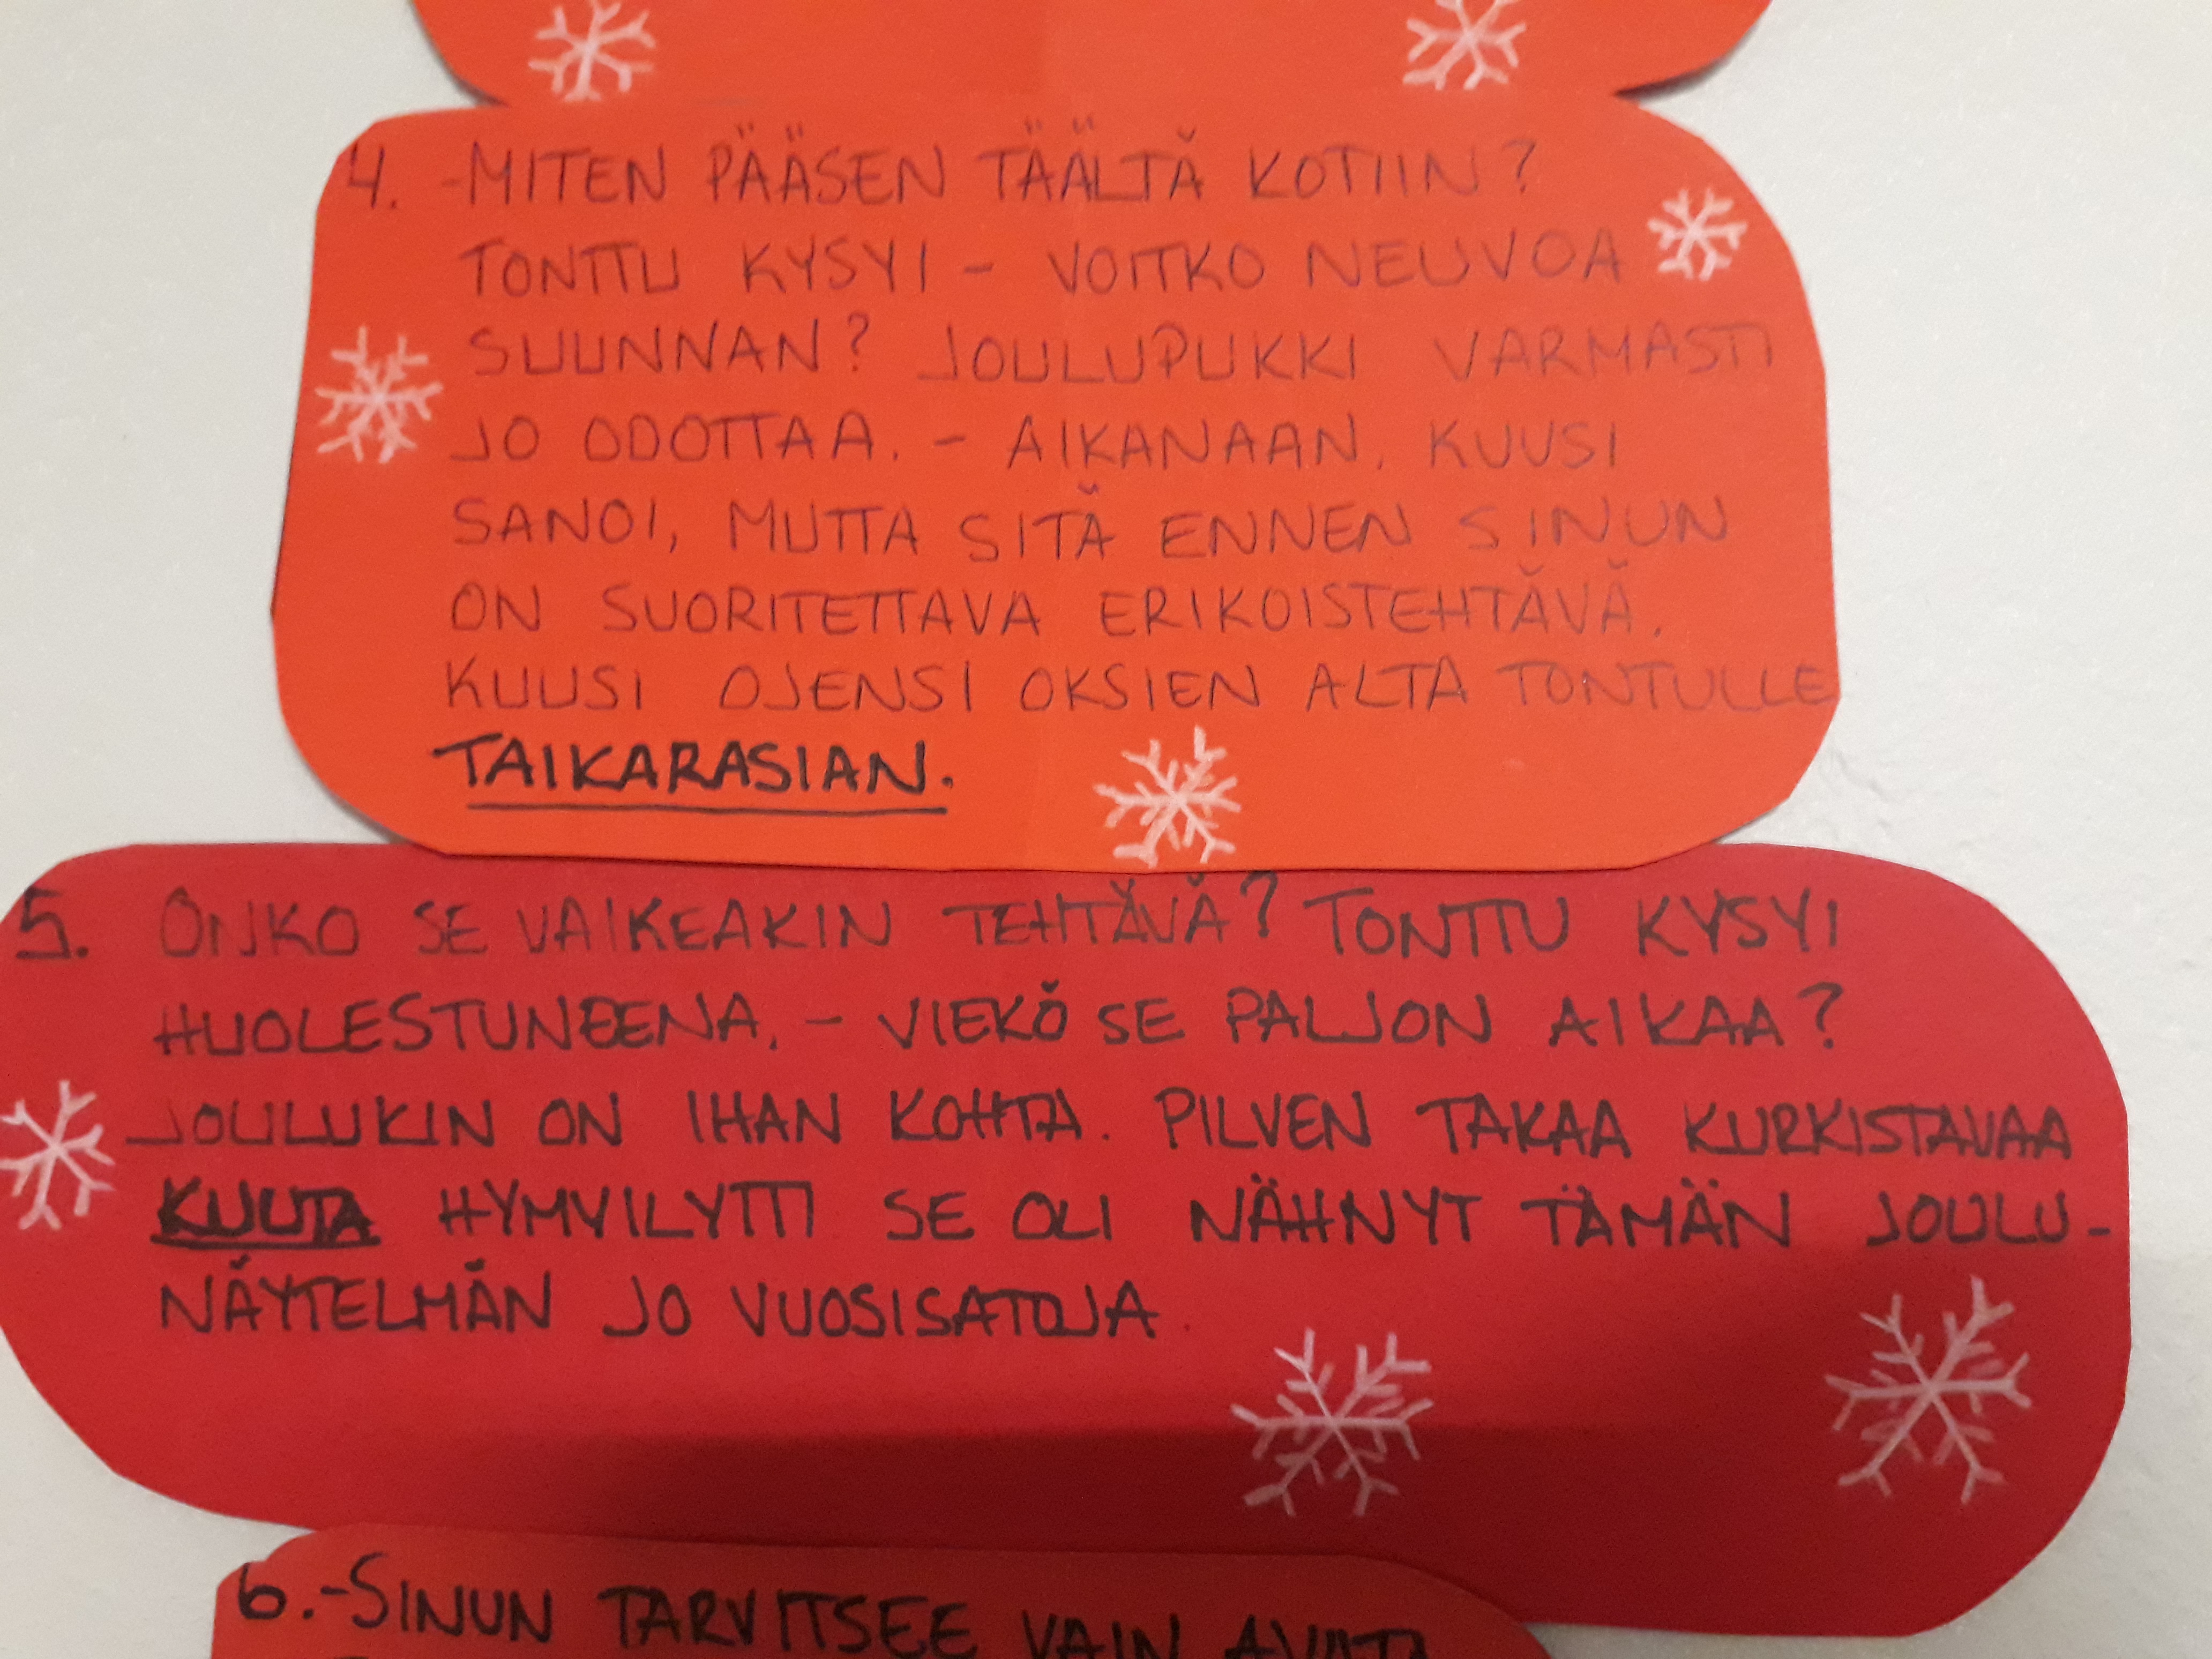 4. -MITEN PÄÄSEN TÄÄLTÄ KOTIIN?
TONTTU KYSYI - VOITKO NEUVOA
SUUNNAN? JOULUPUKKI VARMASTI
JO ODOTTAA. - AIKANAAN, KUUSI
SANOI, MUTTA SITÄ ENNEN SINUN
ON SUORITETTAVA ERIKOISTEHTÄVÄ.
KUUSI OJENSI OKSIEN ALTA TONTULLE
TAIKARASIAN.
5. ONKO SE VAIKEAKIN TEHTÄVÄ? TONTTU KYSYI
HUOLESTUNEENA. - VIEKÖ SE PALJON AIKAA?
JOULUKIN ON IHAN KOHTA. PILVEN TAKAA KURKISTAVAA
KUUTA HYMYILYTTI SE OLI NÄHNYT TÄMÄN JOULU-
NÄYTELMÄN JO VUOSISATOJA.
6. -SINUN TARVITSEE VAIN AVATA